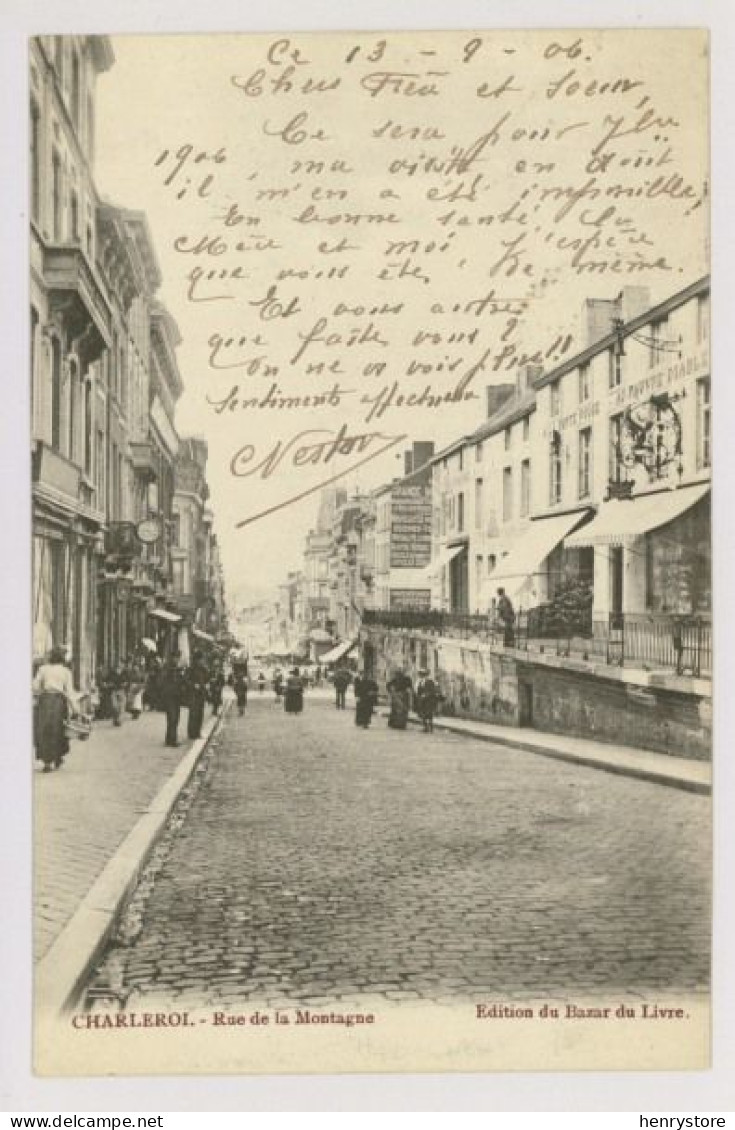 Ce 13 - 9 - 06.
Chers et soeur,
Ce sera pour
1906, ma visite en Août
il m'en a été impossible
En bonne santé, la
Mère et moi, j'espère
que vous êtes de même.
Et vous autres
que faite vous ?
On ne vs vois plus !!!
Sentiments affectueux
Nestor
CHARLEROI. - Rue de la Montagne
Edition du Bazar du Livre.
henrystore